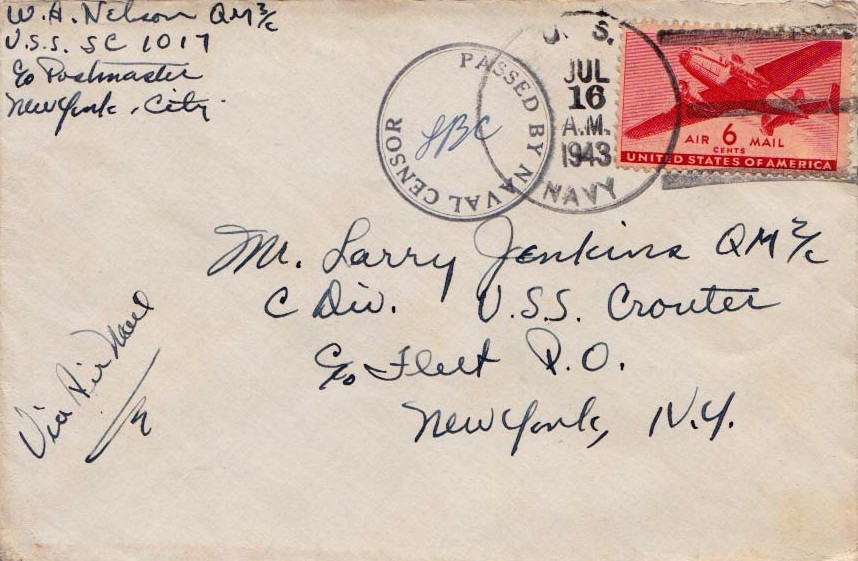 W. H. Nelson QM 2/c
U.S.S. SC 1017
c/o Postmaster
New York, City.
PASSED BY NAVAL CENSOR
U. S.
JUL
16
A.M.
1943
NAVY
AIR 6 MAIL
CENTS
UNITED STATES OF AMERICA
Mr. Larry Jenkins QM 2/c
C Div. U.S.S. Crouter
c/o Fleet P.O.
New York, N.Y.
Via Air Mail